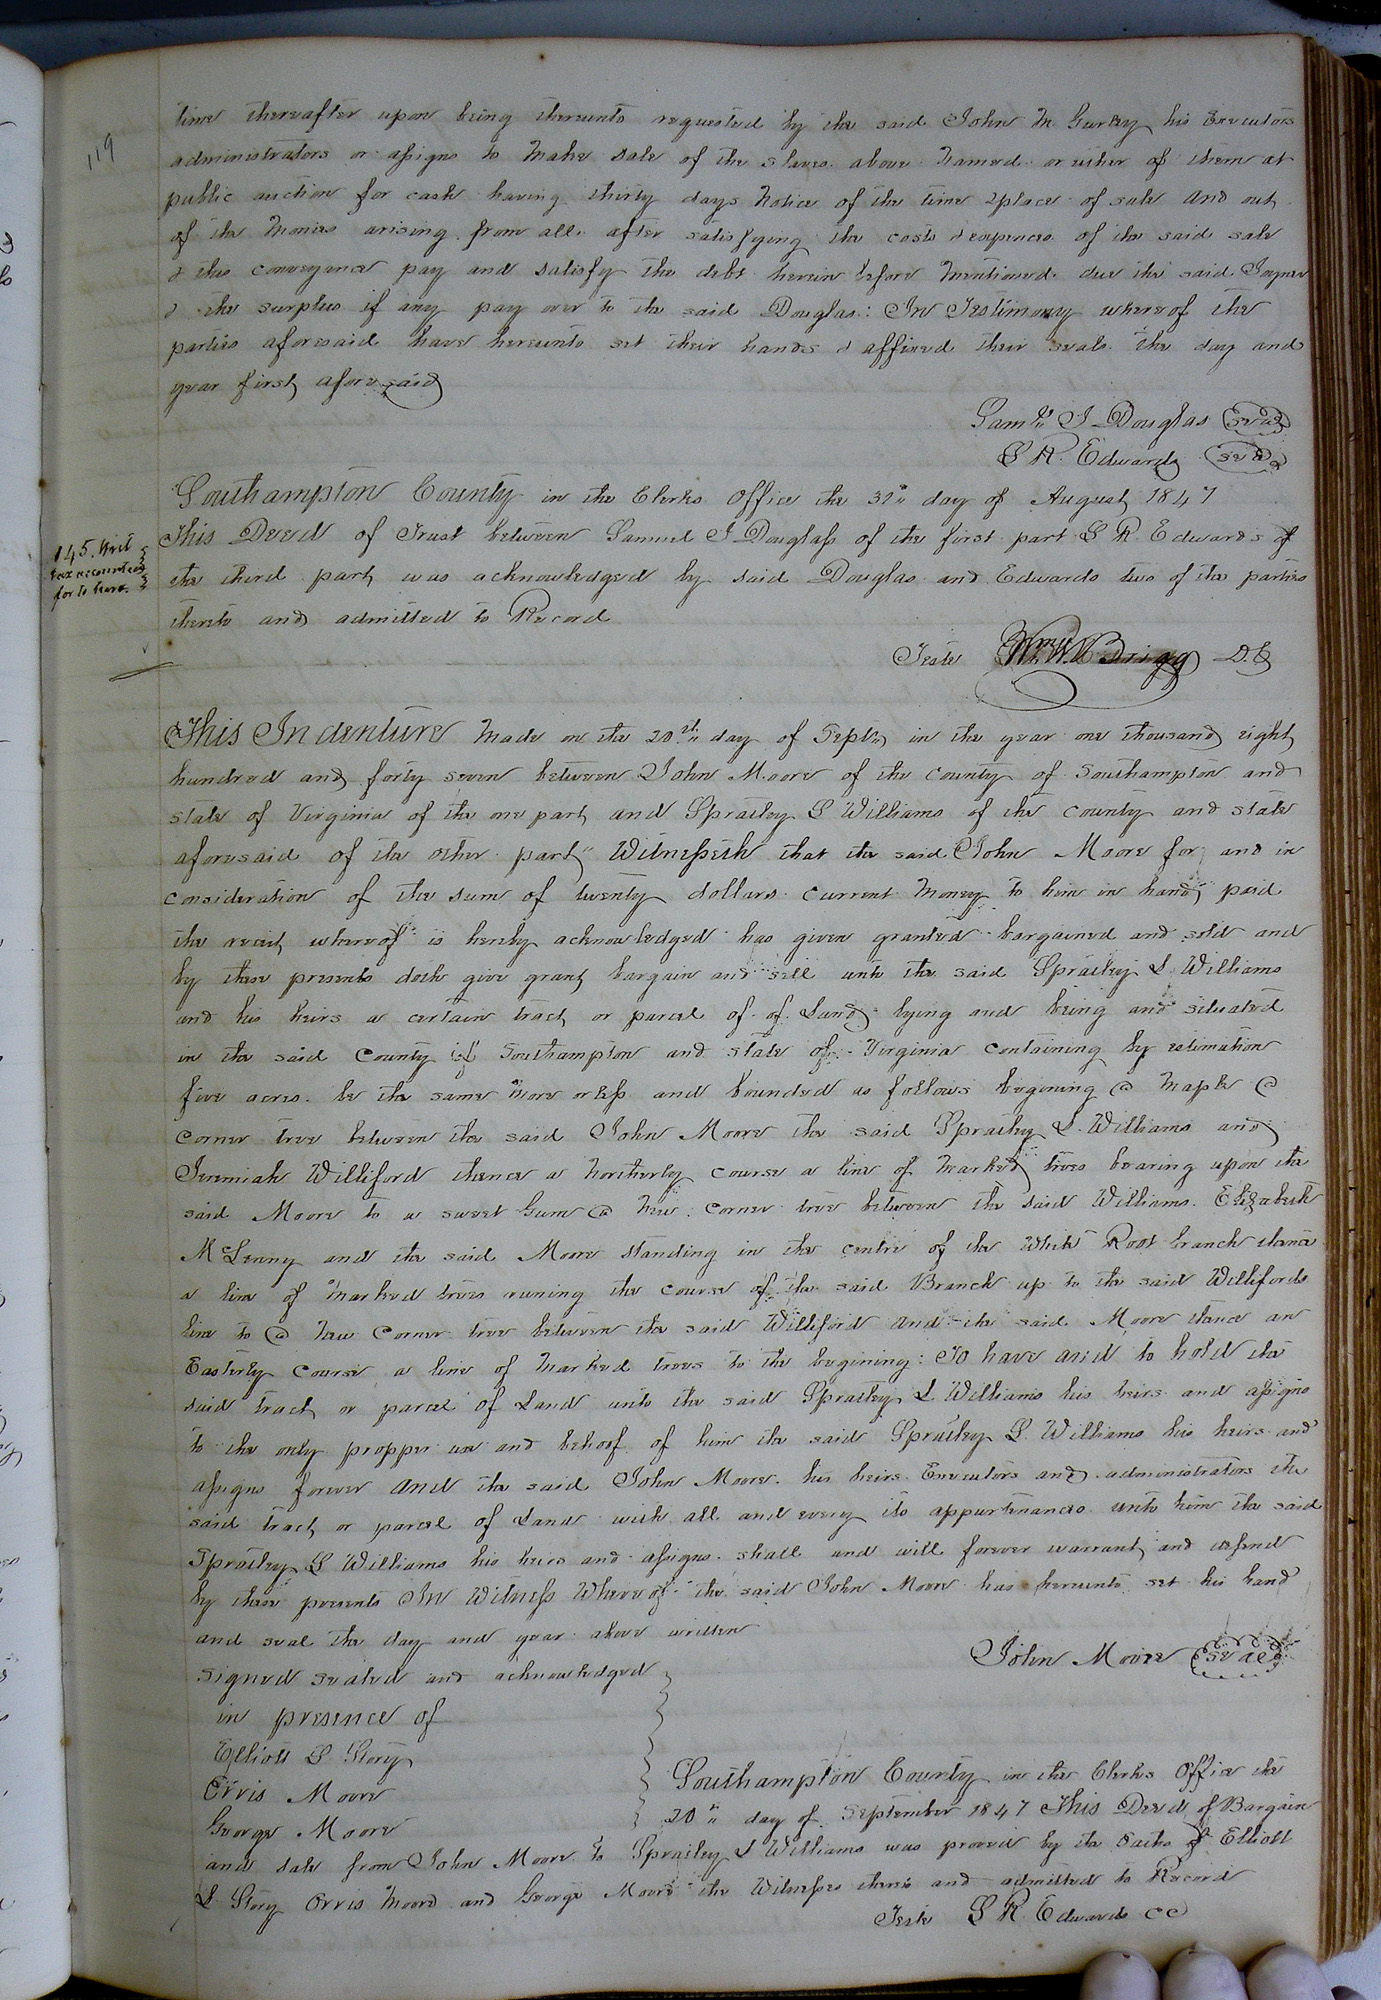 119
time thereafter upon being thereunto requested by the said John M Gurley his Executors
administrators or assigns to make sale of the slaves above named or either of them at
public auction for cash having thirty days notice of the time & place of sale and out
of the monies arising from all, after satisfying the costs & expences of the said sale
& this conveyance pay and satisfy the debt herein before mentioned due the said Joyner
& the surplus if any pay over to the said Douglas: In Testimony whereof the
parties aforesaid have hereunto set their hands & affixed their seals the day and
year first aforesaid
Samll. J Douglas Seal
L R. Edwards Seal
Southampton County in the Clerks Office the 31st day of August 1847
This Deed of Trust between Samuel J Douglass of the first part L R Edwards of
the third part was acknowledged by said Douglas and Edwards two of the parties
thereto and admitted to Record
145. Writ
tax accounted
for to here.
Teste D.C
This Indenture made on the 20th day of Septr. in the year one thousand eight
hundred and forty seven between John Moore of the county of Southampton and
state of Virginia of the one part and Spratley L Williams of the county and state
aforesaid of the other part Witnesseth that the said John Moore for and in
consideration of the sum of twenty dollars current money to him in hand paid
the reciet whereof is hereby acknowledged has given granted bargained and sold and
by these presents doth give grant bargain and sell unto the said Spratley L Williams
and his heirs a certain tract or parcel of of Land lying and being and situated
in the said County of Southampton and state of Virginia containing by estimation
five acres be the same more or less and bounded as follows begining @ Maple @
corner tree between the said John Moore the said Spratley L. Williams and
Jeremiah Williford thence a northerly course a line of marked trees bearing upon the
said Moore to a sweet Gum @ new corner tree between the said Williams. Elizabeth
McLenny and the said Moore standing in the centre of the White Root branch thence
a line of marked trees runing the course of the said Branch up to the said Willifords
line to @ new corner tree between the said Williford and the said Moore thence an
Easterly course a line of marked trees to the begining: To have and to hold the
said tract or parcel of Land unto the said Spratley L Williams his heirs and assigns
to the only propper use and behoof of him the said Spratley L. Williams his heirs and
assigns forever and the said John Moore his heirs Executors and administrators the
said tract or parcel of Land with all and every its appurtinances unto him the said
Spratley L Williams his heirs and assigns shall and will forever warrant and defend
by these presents In Witness Whereof the said John Moore has hereunto set his hand
and seal the day and year above written
John Moore Seal
signed sealed and acknowledged
in presence of
Elliott L. Story
Orris Moore
George Moore
Southampton County in the Clerks Office the
20th day of September 1847 This Deed of Bargain
and sale from John Moore to Spratley L Williams was proved by the oaths of Elliott
L Story Orris Moore and George Moore the Witnesses thereto and admitted to Record
Teste L R Edwards CC